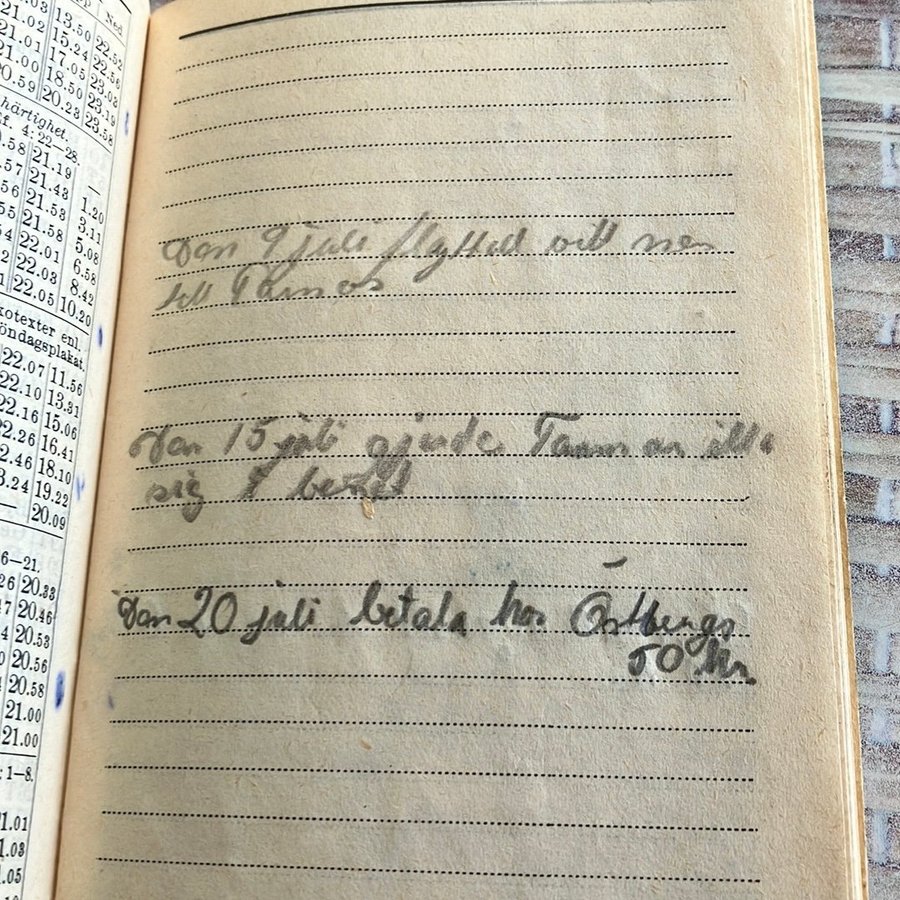 Ned.
.03 13.50 22.52
21.02 15.24 22.56
21.01 17.05 23.03
21.00 18.50 23.19
20.59 20.23 23.58
härtighet.
f. 4: 22—28.
.58 21.19 —
.57 21.43 1.20
.56 21.53 3.11
.55 21.58 5.08
54 22.01 6.58
2 22.03 8.42
1 22.05 10.20
xotexter enl.
öndagsplakat.
22.07 11.56
22.10 13.31
22.16 15.06
22.26 16.41
2.46 18.10
3.24 19.22
— 20.09
6—21.
26 20.33
17 20.46
20.53
20.56
20.58
21.00
21.00
: 1—8.
1.01
1.03
1.05
Den 9 juli flyttade vill ner
till Tarnos
Den 15 juli gjorde Tarman illa
sig i benet
Den 20 juli betala hos Östbergs
50 kr.